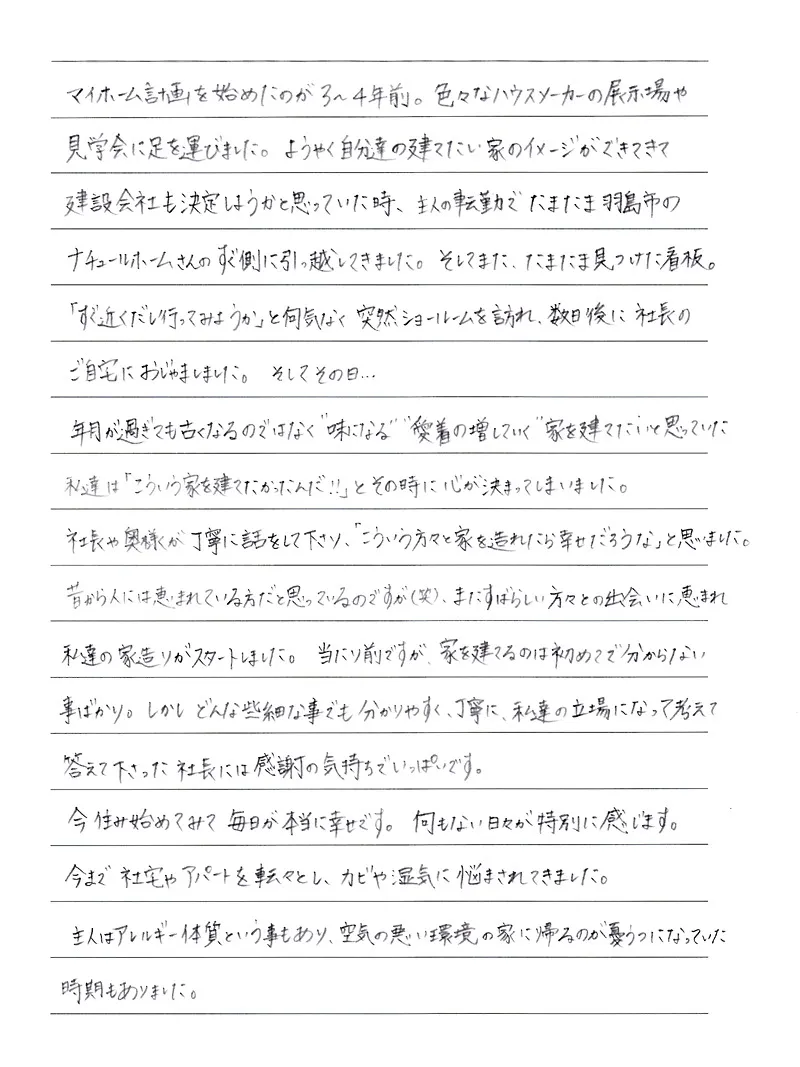 マイホーム計画を始めたのが3〜4年前。色々なハウスメーカーの展示場や
見学会に足を運びました。ようやく自分達の建てたい家のイメージができてきて
建設会社も決定しようかと思っていた時、主人の転勤でたまたま羽島市の
ナチュールホームさんのすぐ側に引っ越してきました。そしてまた、たまたま見つけた看板。
「すぐ近くだし行ってみようか」と何気なく突然ショールームを訪れ、数日後に社長の
ご自宅におじゃましました。そしてその日…
年月が過ぎても古くなるのではなく"味になる""愛着の増していく"家を建てたいと思っていた
私達は「こういう家を建てたかったんだ!!」とその時に心が決まってしまいました。
社長や奥様が丁寧に話をして下さり、「こういう方々と家を造れたら幸せだろうな」と思いました。
昔から人には恵まれている方だと思っているのですが(笑)、またすばらしい方々との出会いに恵まれ
私達の家造りがスタートしました。当たり前ですが、家を建てるのは初めてで分からない
事ばかり。しかしどんな些細な事でも分かりやすく、丁寧に、私達の立場になって考えて
答えて下さった社長には感謝の気持ちでいっぱいです。
今住み始めてみて毎日が本当に幸せです。何もない日々が特別に感じます。
今まで社宅やアパートを転々とし、カビや湿気に悩まされてきました。
主人はアレルギー体質という事もあり、空気の悪い環境の家に帰るのが憂うつになっていた
時期もありました。